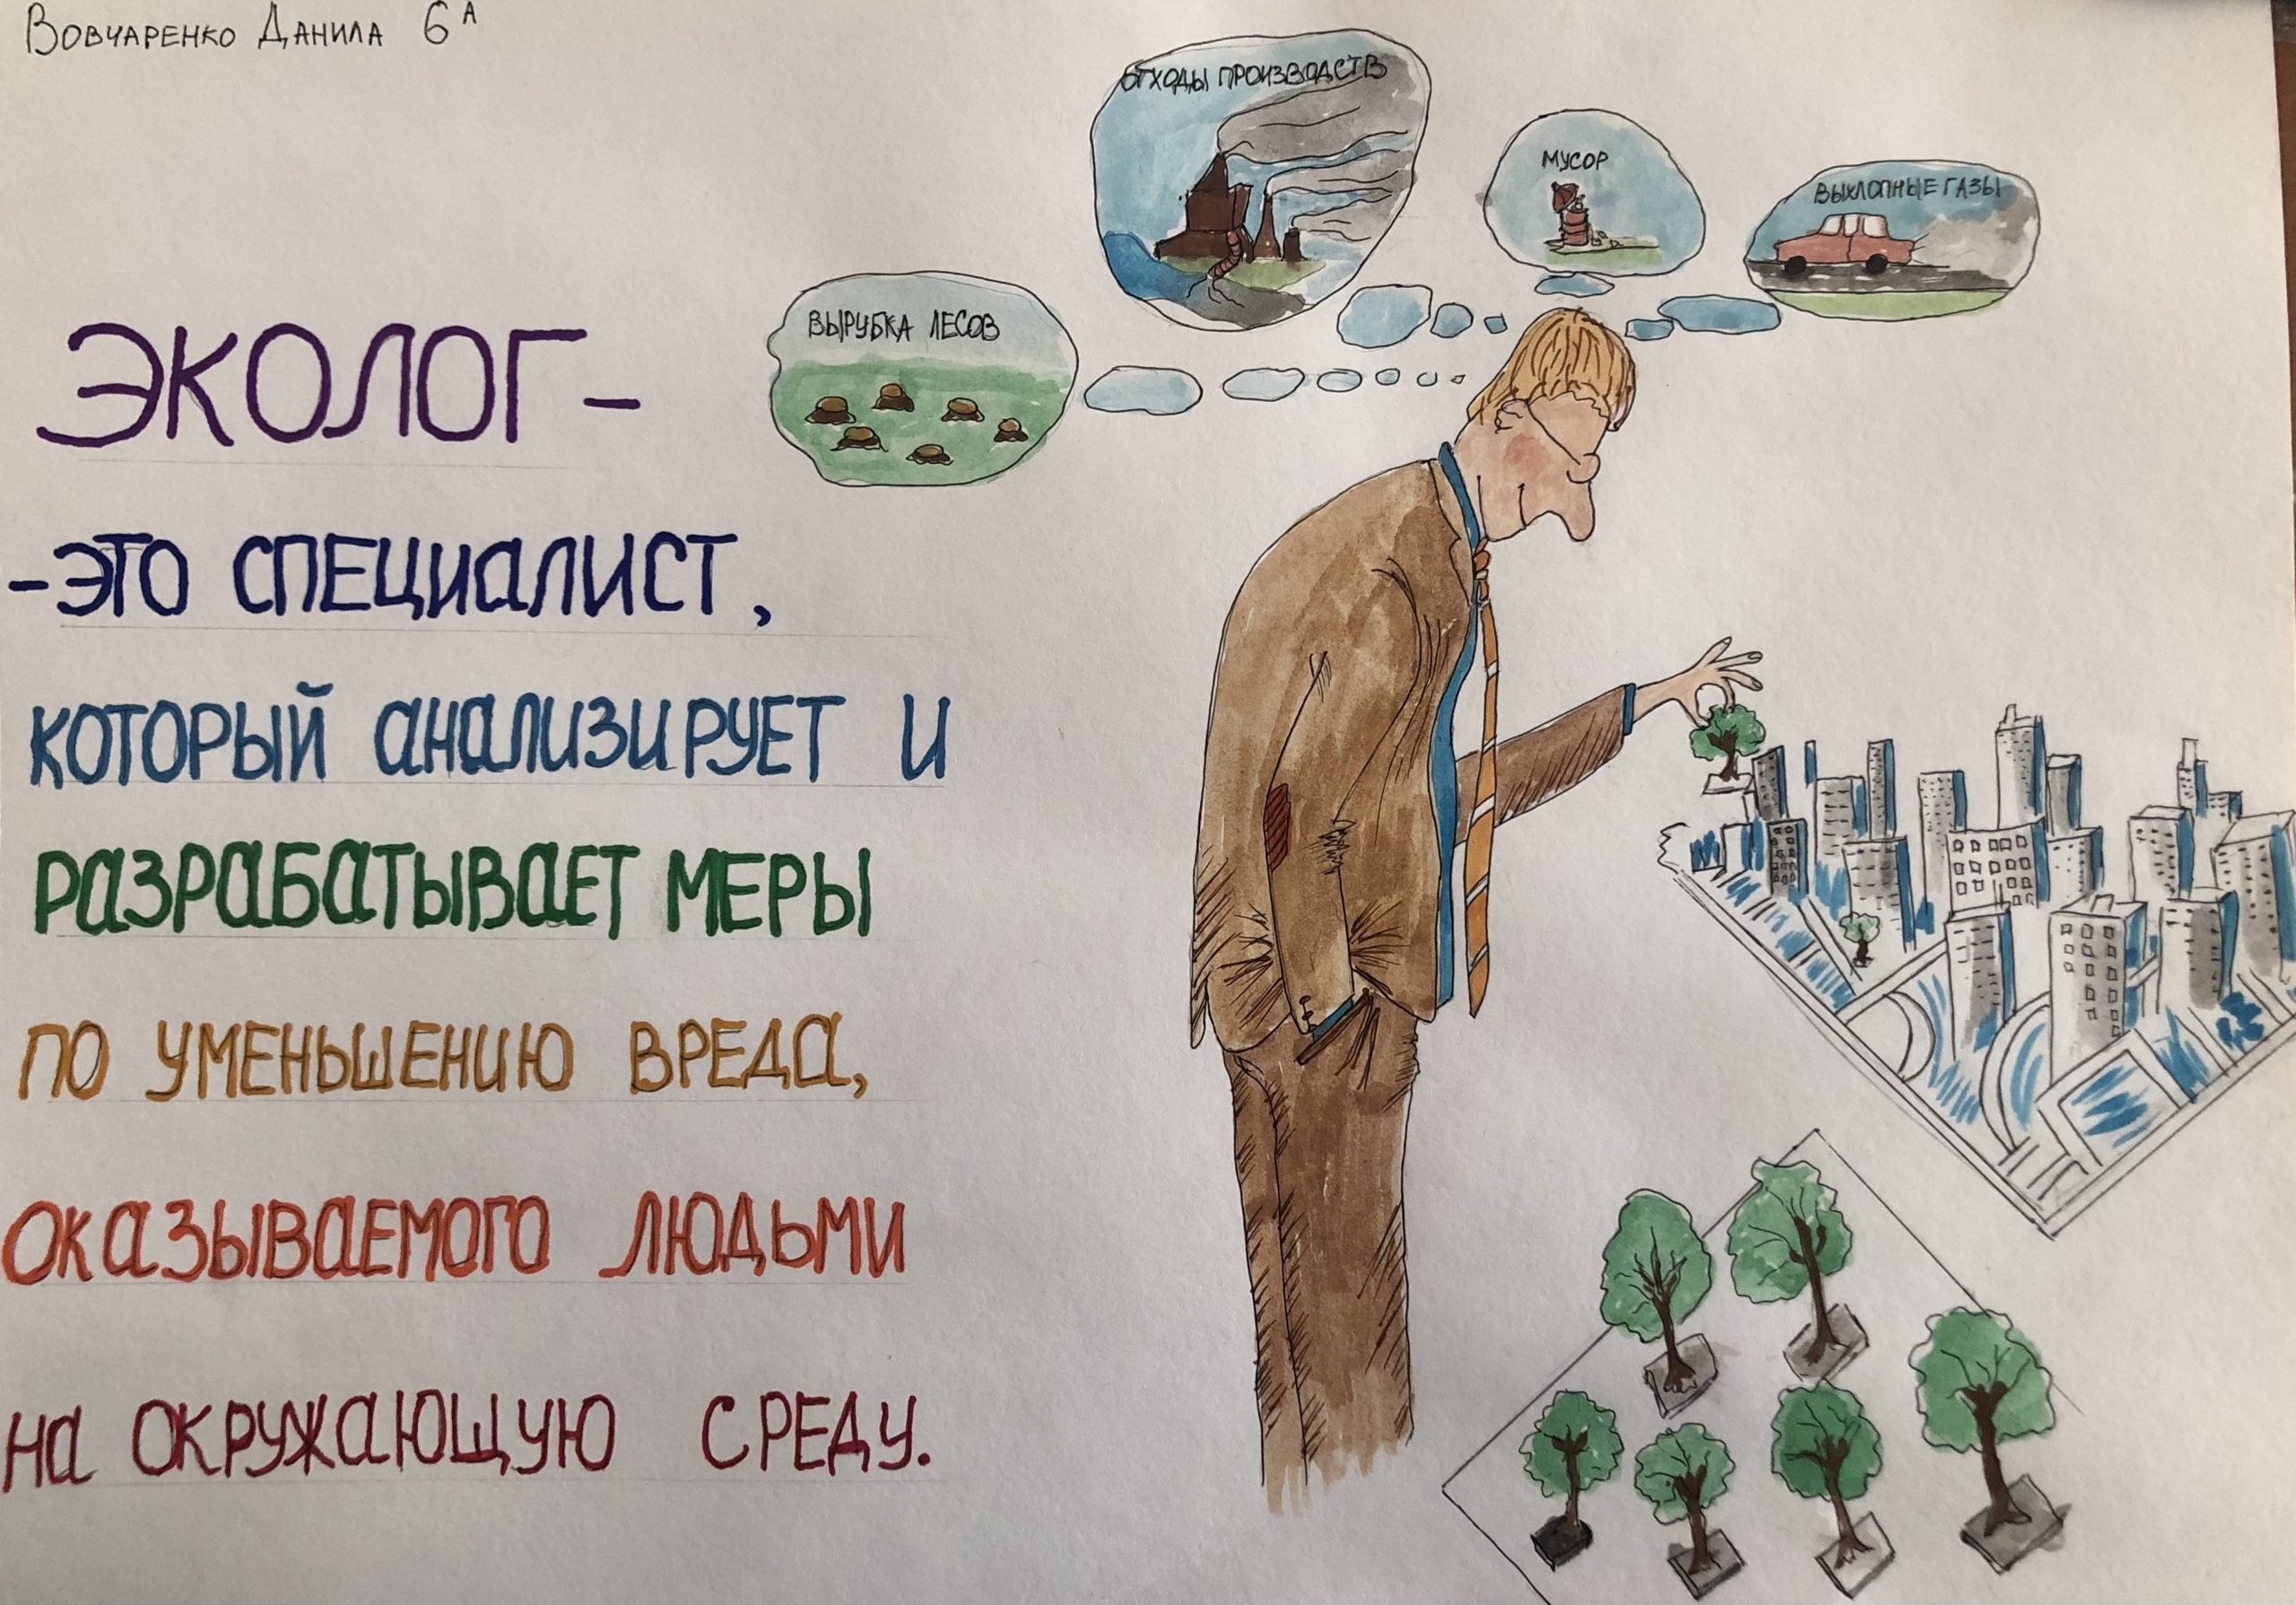 Вовчаренко Данила 6А
ЭКОЛОГ-
-ЭТО СПЕЦИАЛИСТ,
КОТОРЫЙ АНАЛИЗИРУЕТ И
РАЗРАБАТЫВАЕТ МЕРЫ
ПО УМЕНЬШЕНИЮ ВРЕДА,
ОКАЗЫВАЕМОГО ЛЮДЬМИ
НА ОКРУЖАЮЩУЮ СРЕДУ.
ВЫРУБКА ЛЕСОВ
ОТХОДЫ ПРОИЗВОДСТВ
МУСОР
ВЫХЛОПНЫЕ ГАЗЫ